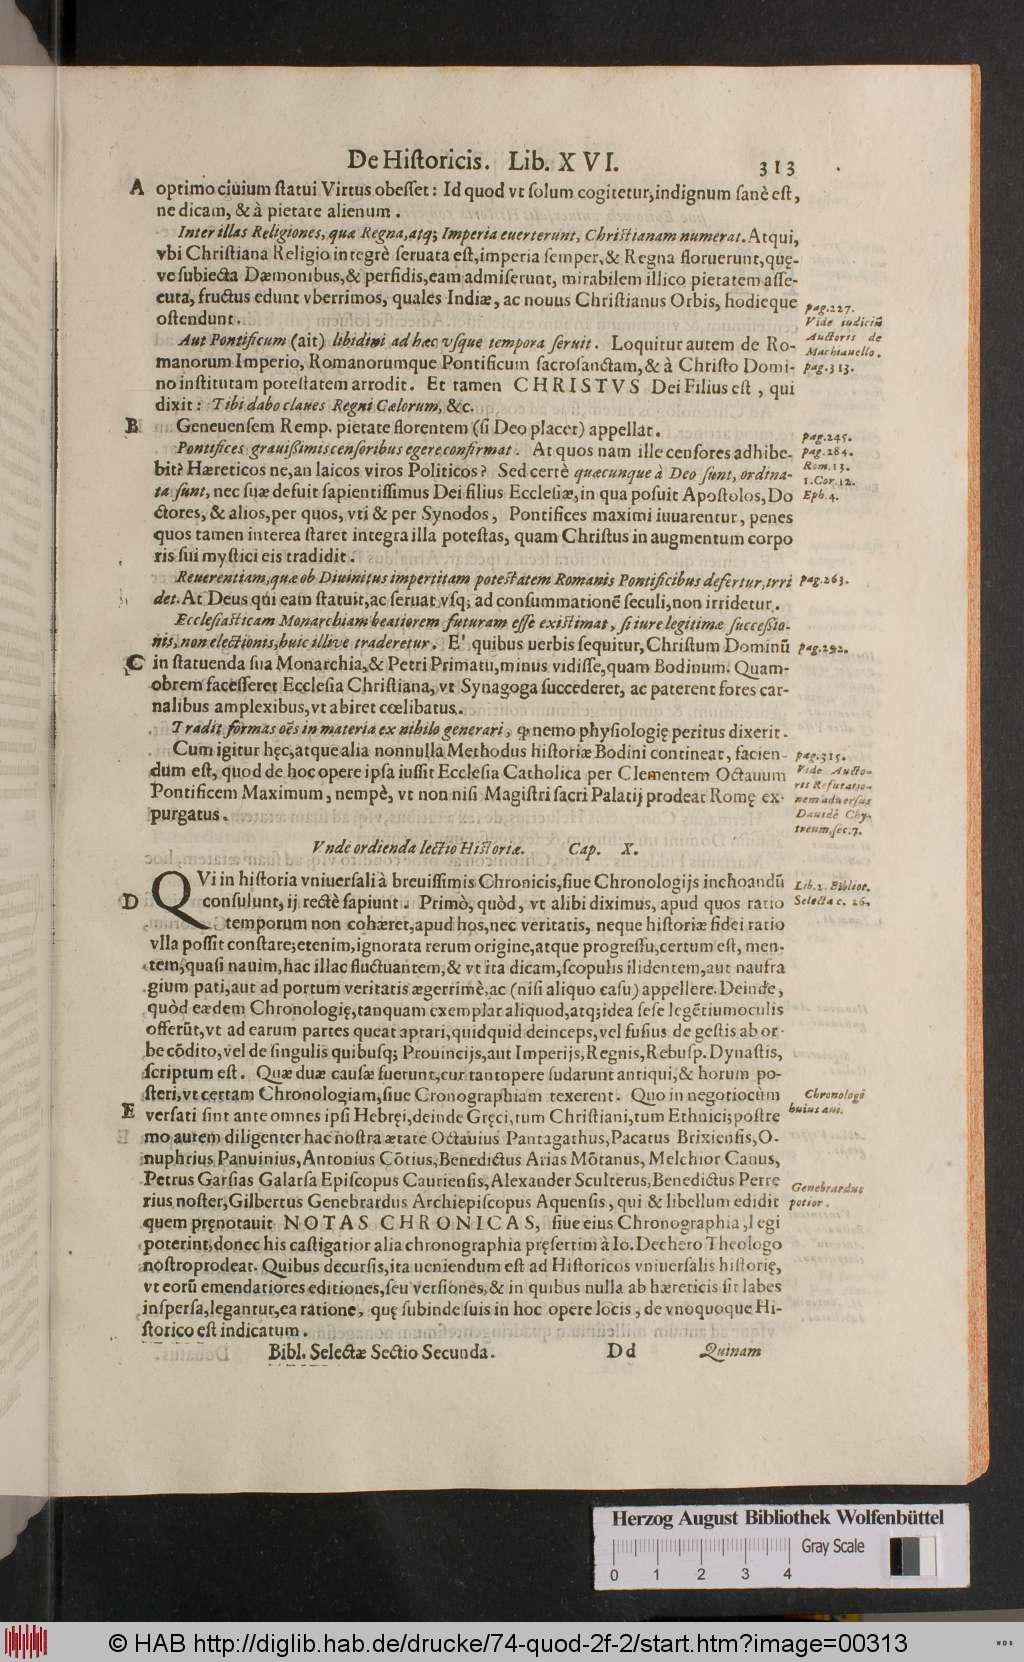 De Historicis. Lib. XVI. 313
A optimo ciuium statui Virtus obesset: Id quod vt solum cogitetur, indignum sanè est,
ne dicam, & à pietate alienum.
Inter illas Religiones, quæ Regna, atq; Imperia euerterunt, Christianam numerat. Atqui,
vbi Christiana Religio integrè seruata est, imperia semper, & Regna floruerunt, quę-
ve subiecta Dæmonibus, & perfidis, eam admiserunt, mirabilem illico pietatem asse-
cuta, fructus edunt vberrimos, quales Indiæ, ac nouus Christianus Orbis, hodieque
ostendunt.
pag. 227.
Vide iudiciũ
Auctoris de
Machiauello.
pag. 313.
Aut Pontificum (ait) libidini ad hæc vsque tempora seruit. Loquitur autem de Ro-
manorum Imperio, Romanorumque Pontificum sacrosanctam, & à Christo Domi-
no institutam potestatem arrodit. Et tamen CHRISTVS Dei Filius est, qui
dixit: Tibi dabo claues Regni Cælorum, &c.
B Geneuensem Remp. pietate florentem (si Deo placet) appellat.
Pontifices grauißimis censoribus egere confirmat. At quos nam ille censores adhibe-
bit? Hæreticos ne, an laicos viros Politicos? Sed certè quæcunque à Deo sunt, ordina-
ta sunt, nec suæ defuit sapientissimus Dei filius Ecclesiæ, in qua posuit Apostolos, Do
ctores, & alios, per quos, vti & per Synodos, Pontifices maximi iuuarentur, penes
quos tamen interea staret integra illa potestas, quam Christus in augmentum corpo
ris sui mystici eis tradidit.
pag. 245.
pag. 284.
Rom. 13.
1. Cor. 12.
Eph. 4.
Reuerentiam, quæ ob Diuinitus impertitam potestatem Romanis Pontificibus defertur, irri
det. At Deus qui eam statuit, ac seruat vsq; ad consummationē seculi, non irridetur.
pag. 263.
Ecclesiasticam Monarchiam beatiorem futuram esse existimat, si iure legitimæ successio-
nis, non electionis, huic illive traderetur. E' quibus uerbis sequitur, Christum Dominũ
C in statuenda sua Monarchia, & Petri Primatu, minus vidisse, quam Bodinum. Quam-
obrem facesseret Ecclesia Christiana, vt Synagoga succederet, ac paterent fores car-
nalibus amplexibus, vt abiret cœlibatus.
pag. 292.
Tradit formas oēs in materia ex nihilo generari, ꝙ nemo physiologię peritus dixerit.
Cum igitur hęc, atque alia nonnulla Methodus historiæ Bodini contineat, facien-
dum est, quod de hoc opere ipsa iussit Ecclesia Catholica per Clementem Octauum
Pontificem Maximum, nempè, vt non nisi Magistri sacri Palatij prodeat Romę ex-
purgatus.
pag. 315.
Vide Aucto-
ris Refutatio-
nem aduersus
Dauidē Chy-
treum, sec. 7.
Vnde ordienda lectio Historiæ. Cap. X.
QVi in historia vniuersali à breuissimis Chronicis, siue Chronologijs inchoandũ
D consulunt, ij rectè sapiunt. Primò, quòd, vt alibi diximus, apud quos ratio
temporum non cohæret, apud hos, nec veritatis, neque historiæ fidei ratio
vlla possit constare; etenim, ignorata rerum origine, atque progressu, certum est, men-
tem, quasi nauim, hac illac fluctuantem, & vt ita dicam, scopulis ilidentem, aut naufra
gium pati, aut ad portum veritatis ægerrimè, ac (nisi aliquo casu) appellere. Deinde,
quòd eædem Chronologię, tanquam exemplar aliquod, atq; idea sese legētium oculis
offerũt, vt ad earum partes queat aptari, quidquid deinceps, vel fusius de gestis ab or-
be cōdito, vel de singulis quibusq; Prouincijs, aut Imperijs, Regnis, Rebusp. Dynastis,
scriptum est. Quæ duæ causæ fuerunt, cur tantopere sudarunt antiqui, & horum po-
steri, vt certam Chronologiam, siue Cronographiam texerent. Quo in negotio cùm
E versati sint ante omnes ipsi Hebręi, deinde Gręci, tum Christiani, tum Ethnici; postre
mo autem diligenter hac nostra ætate Octauius Pantagathus, Pacatus Brixiensis, O-
nuphrius Panuinius, Antonius Cōtius, Benedictus Arias Mōtanus, Melchior Canus,
Petrus Garsias Galarsa Episcopus Cauriensis, Alexander Sculterus, Benedictus Perre
rius noster, Gilbertus Genebrardus Archiepiscopus Aquensis, qui & libellum edidit
quem pręnotauit NOTAS CHRONICAS, siue eius Chronographia, legi
poterint, donec his castigatior alia chronographia pręsertim à Io. Dechero Theologo
nostro prodeat. Quibus decursis, ita ueniendum est ad Historicos vniuersalis historię,
vt eorũ emendatiores editiones, seu versiones, & in quibus nulla ab hæreticis sit labes
inspersa, legantur, ea ratione, quę subinde suis in hoc opere locis, de vnoquoque Hi-
storico est indicatum.
Lib. 1. Bibliot.
Selecta c. 26.
Chronologi
huius æui.
Genebrardus
potior.
Bibl. Selectæ Sectio Secunda. Dd Quinam
Herzog August Bibliothek Wolfenbüttel
Gray Scale
0 1 2 3 4
© HAB http://diglib.hab.de/drucke/74-quod-2f-2/start.htm?image=00313